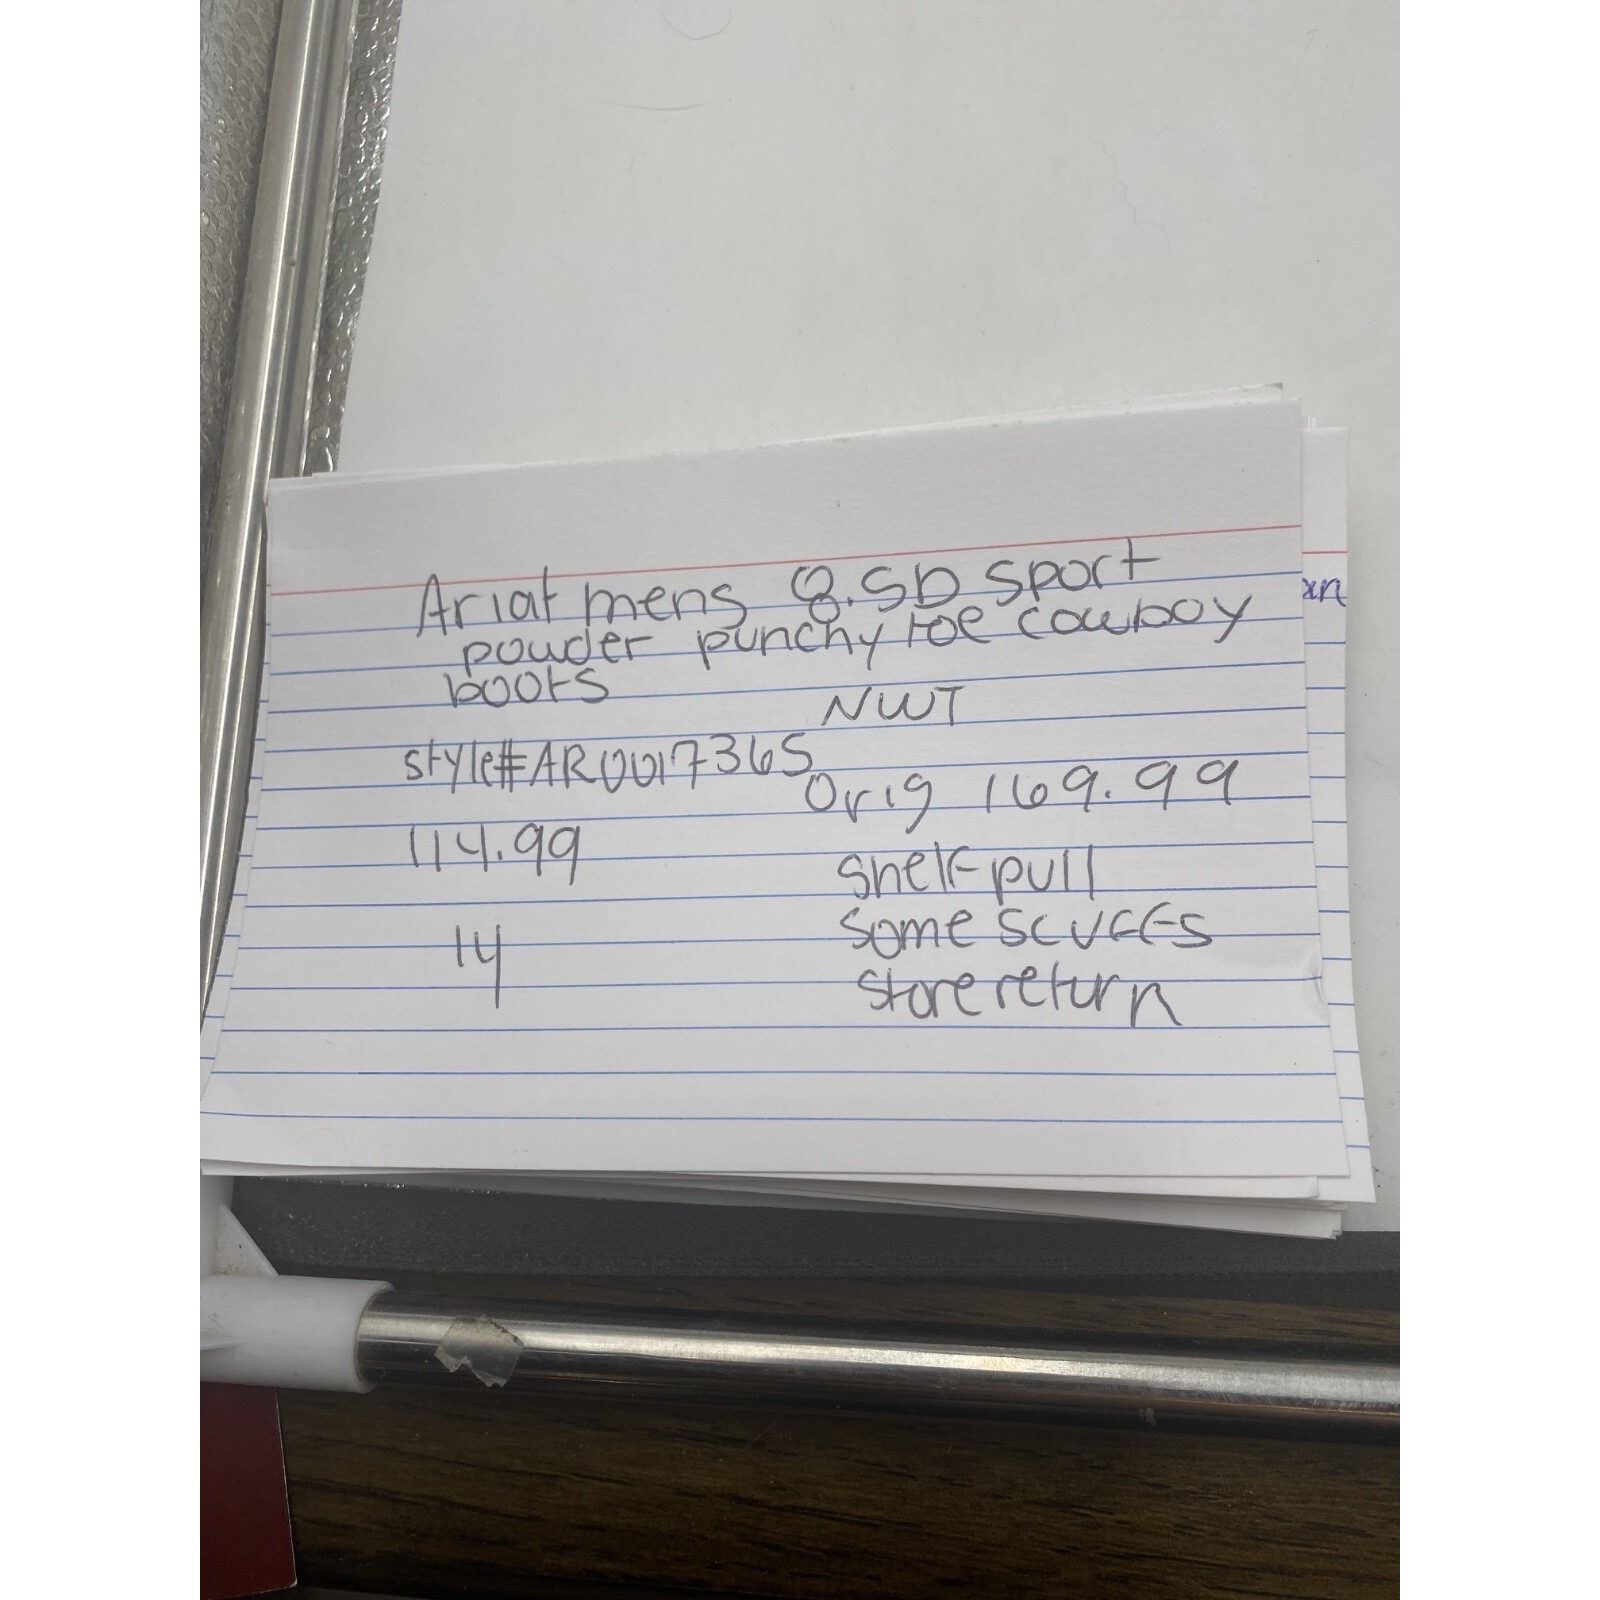 Ariat mens 8.5D sport
powder punchy toe cowboy
boots
NWT
style#AR0017365
Orig 169.99
114.99
shelf pull
some scuffs
14
store return